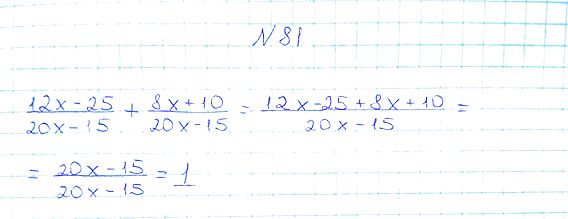 № 81
(12x - 25)/(20x - 15) + (8x + 10)/(20x - 15) = (12x - 25 + 8x + 10)/(20x - 15) =
= (20x - 15)/(20x - 15) = 1